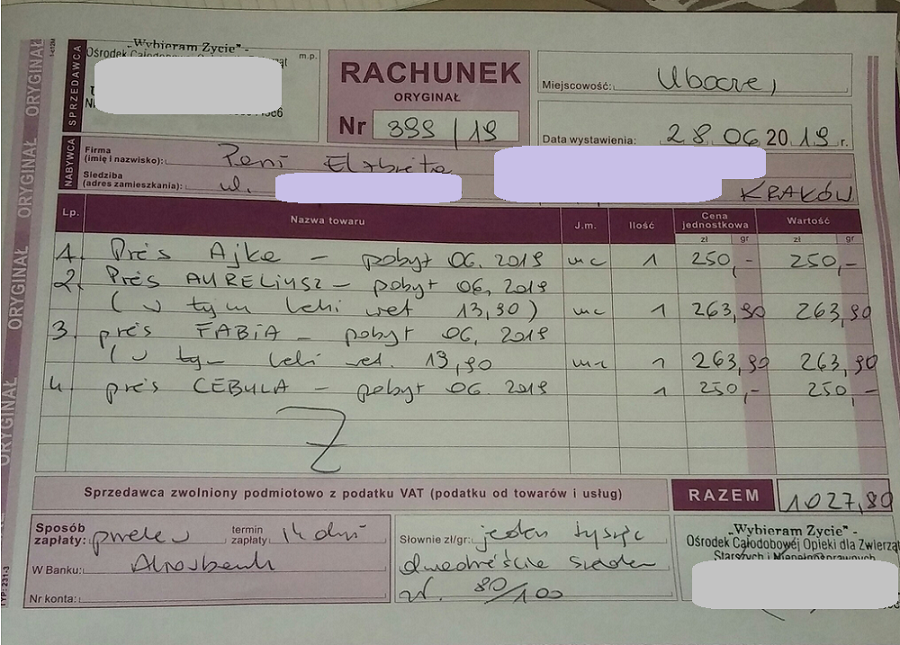 ORYGINAŁ ORYGINAŁ ORYGINAŁ ORYGINAŁ
SPRZEDAWCA
„Wybieram Życie” -
Ośrodek Całodobowej Opieki
m.p.
RACHUNEK
ORYGINAŁ
Nr 399/19
Miejscowość: Ubocze,
Data wystawienia: 28.06 2019 r.
NABYWCA
Firma (imię i nazwisko): Pani Elżbieta
Siedziba (adres zamieszkania): ul. KRAKÓW
Lp. Nazwa towaru J.m. Ilość Cena jednostkowa Wartość
zł gr zł gr
1. Pies Ajke – pobyt 06.2019 mc 1 250,- 250,-
2. Pies AURELIUSZ – pobyt 06,2019
(w tym leki wet 13,90) mc 1 263,90 263,90
3. pies FABIA – pobyt 06,2019
(w tym leki wet. 13,90 mc 1 263,90 263,90
4. pies CEBULA – pobyt 06.2019 1 250,- 250,-
Sprzedawca zwolniony podmiotowo z podatku VAT (podatku od towarów i usług)
RAZEM 1027,80
Sposób zapłaty: przelew termin zapłaty 14 dni
W Banku:
Nr konta:
Słownie zł/gr: jeden tysiąc
dwadzieścia siedem
zł. 80/100
„Wybieram Życie” -
Ośrodek Całodobowej Opieki dla Zwierząt
Starszych i Niepełnosprawnych
TYP: 231-3